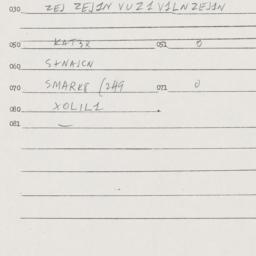 030 ZEJ ZEJ1N VUZ1V1LNZEJ1N
050 KAT3R 051 0
060 S+NAJCN
070 SMARKE (249 071 0
080 XOLIL1
081 –